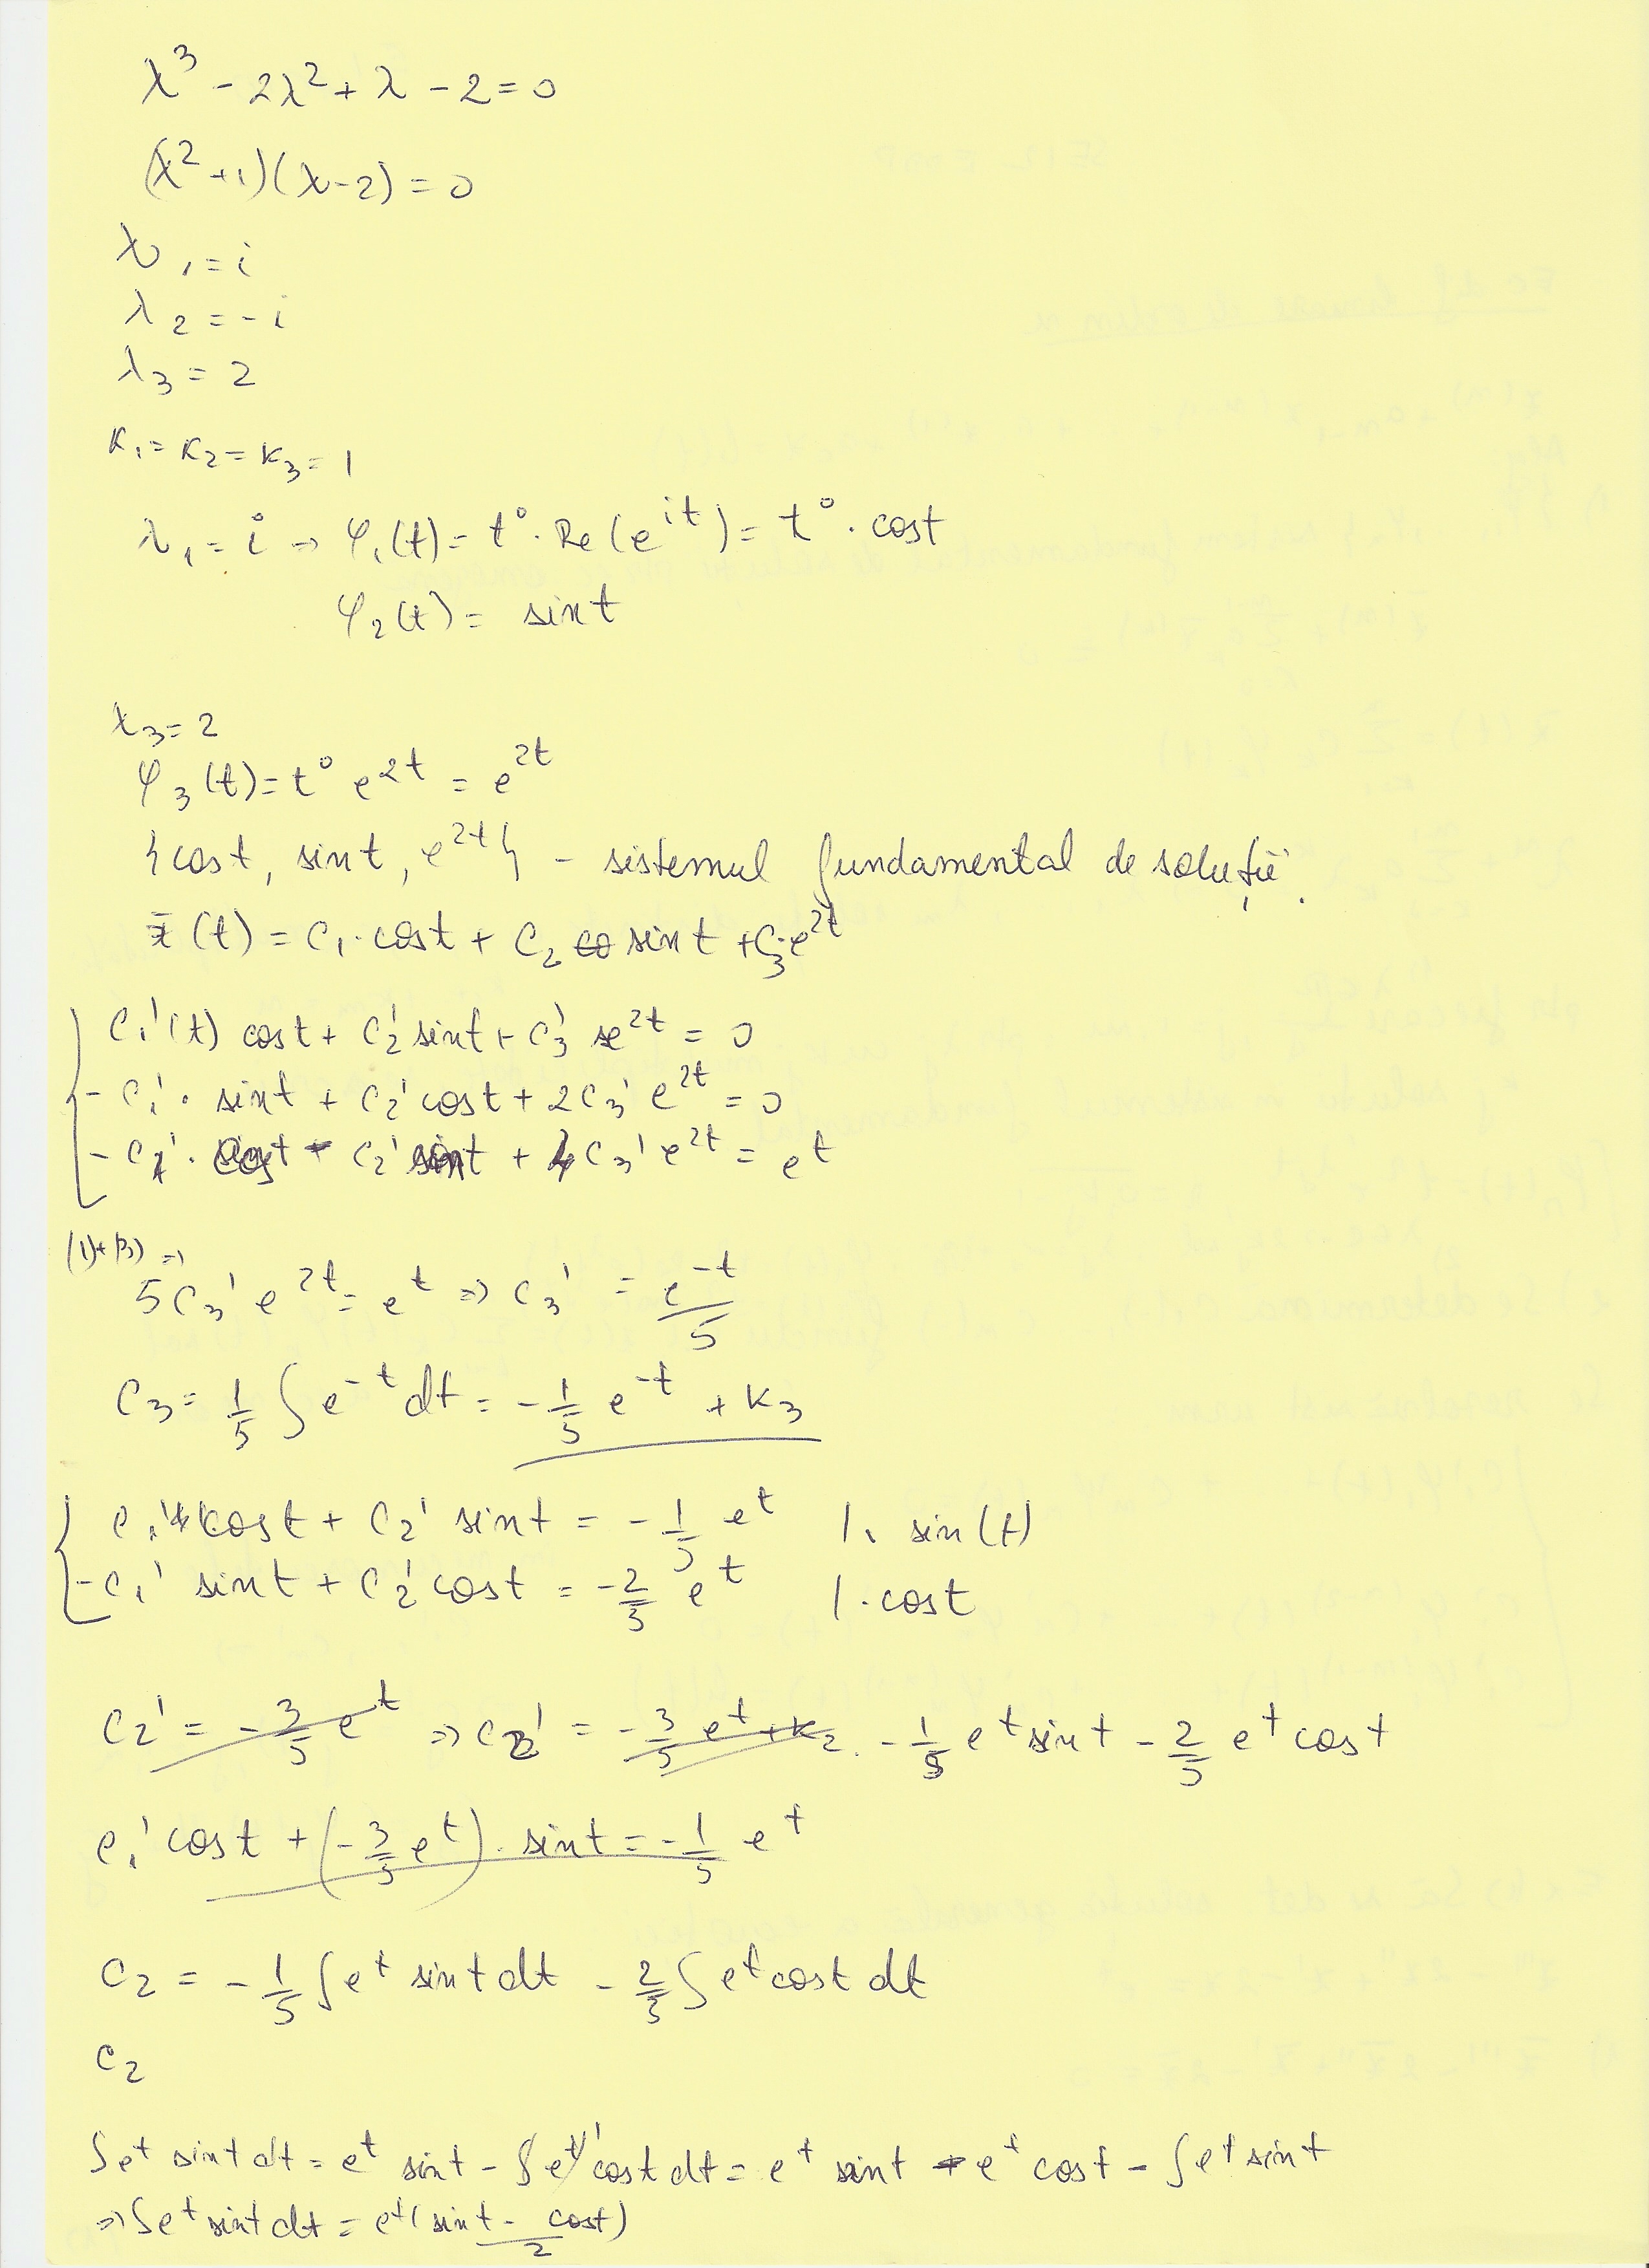 λ³ - 2λ² + λ - 2 = 0
(λ² + 1)(λ - 2) = 0
λ₁ = i
λ₂ = -i
λ₃ = 2
K₁ = K₂ = K₃ = 1
λ₁ = i ⇒ φ₁(t) = t⁰ · Re(e^{it}) = t⁰ · cost
φ₂(t) = sint
λ₃ = 2
φ₃(t) = t⁰ e^{2t} = e^{2t}
{cost, sint, e^{2t}} - sistemul fundamental de soluții.
x̄(t) = C₁ · cost + C₂ sint + C₃ · e^{2t}
C₁'(t) cost + C₂' sint + C₃' e^{2t} = 0
- C₁' · sint + C₂' cost + 2C₃' e^{2t} = 0
- C₁' · cost - C₂' sint + 4C₃' e^{2t} = e^t
(1)+(3) ⇒
5C₃' e^{2t} = e^t ⇒ C₃' = e^{-t}/5
C₃ = 1/5 ∫ e^{-t} dt = -1/5 e^{-t} + K₃
C₁' cost + C₂' sint = -1/5 e^t |· sin(t)
-C₁' sint + C₂' cost = -2/5 e^t |· cost
C₂' = -3/5 e^t ⇒ C₂' = -3/5 e^t + K₂ - 1/5 e^t sint - 2/5 e^t cost
C₁' cost + (-3/5 e^t) · sint = -1/5 e^t
C₂ = -1/5 ∫ e^t sint dt - 2/5 ∫ e^t cost dt
C₂
∫ e^t sint dt = e^t sint - ∫(e^t)' cost dt = e^t sint - e^t cost - ∫ e^t sint
⇒ ∫ e^t sint dt = e^t (sint - cost)/2